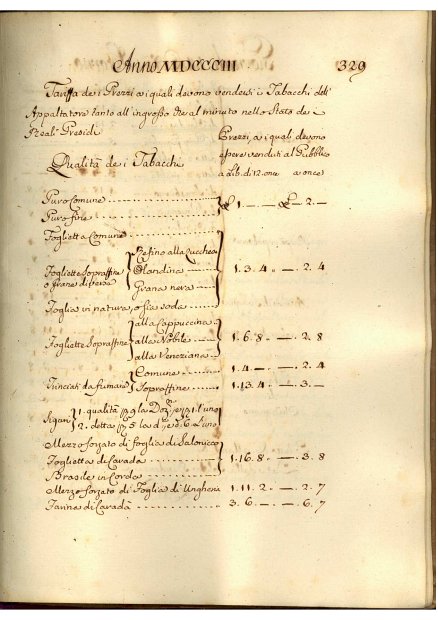 Anno MDCCCIII 329
Tariffa de i Prezzi a i quali devono vendersi i Tabacchi dell'
Appaltatore tanto all'ingrosso che al minuto nello Stato de i
Reali Presidi
Prezzi, a i quali devono
essere venduti al Pubblico
Qualità de i Tabacchi
a Lib. di 12. once a once
Puro Comune £ 1. — £ — 2. —
Puro fine
Foglietta Comune
Refino alla Zucchea
Fogliette Sopraffine Olandina 1. 3. 4. — . 2. 4
o grane diverse
Grana nera
Foglia in natura, o sia soda
alla Cappuccina
Fogliette Sopraffine alla Nobile 1. 6. 8. — . 2. 8
alla Veneziana
Comune 1. 4. — . — . 2. 4
Trinciati da fumare Sopraffine 1. 13. 4. — . 3. —
Sigari 1. qualità 9 la Doz. 1. l'uno
2. detta 5 la d. 6. l'uno
Mezzo forzato di foglia di Salonicco
Foglietta di Caradà 1. 16. 8. — . 3. 8
Brasile in Corda
Mezzo forzato di Foglia di Ungheria 1. 11. 2. — . 2. 7
Farina di Caradà 3. 6. — . — . 6. 7